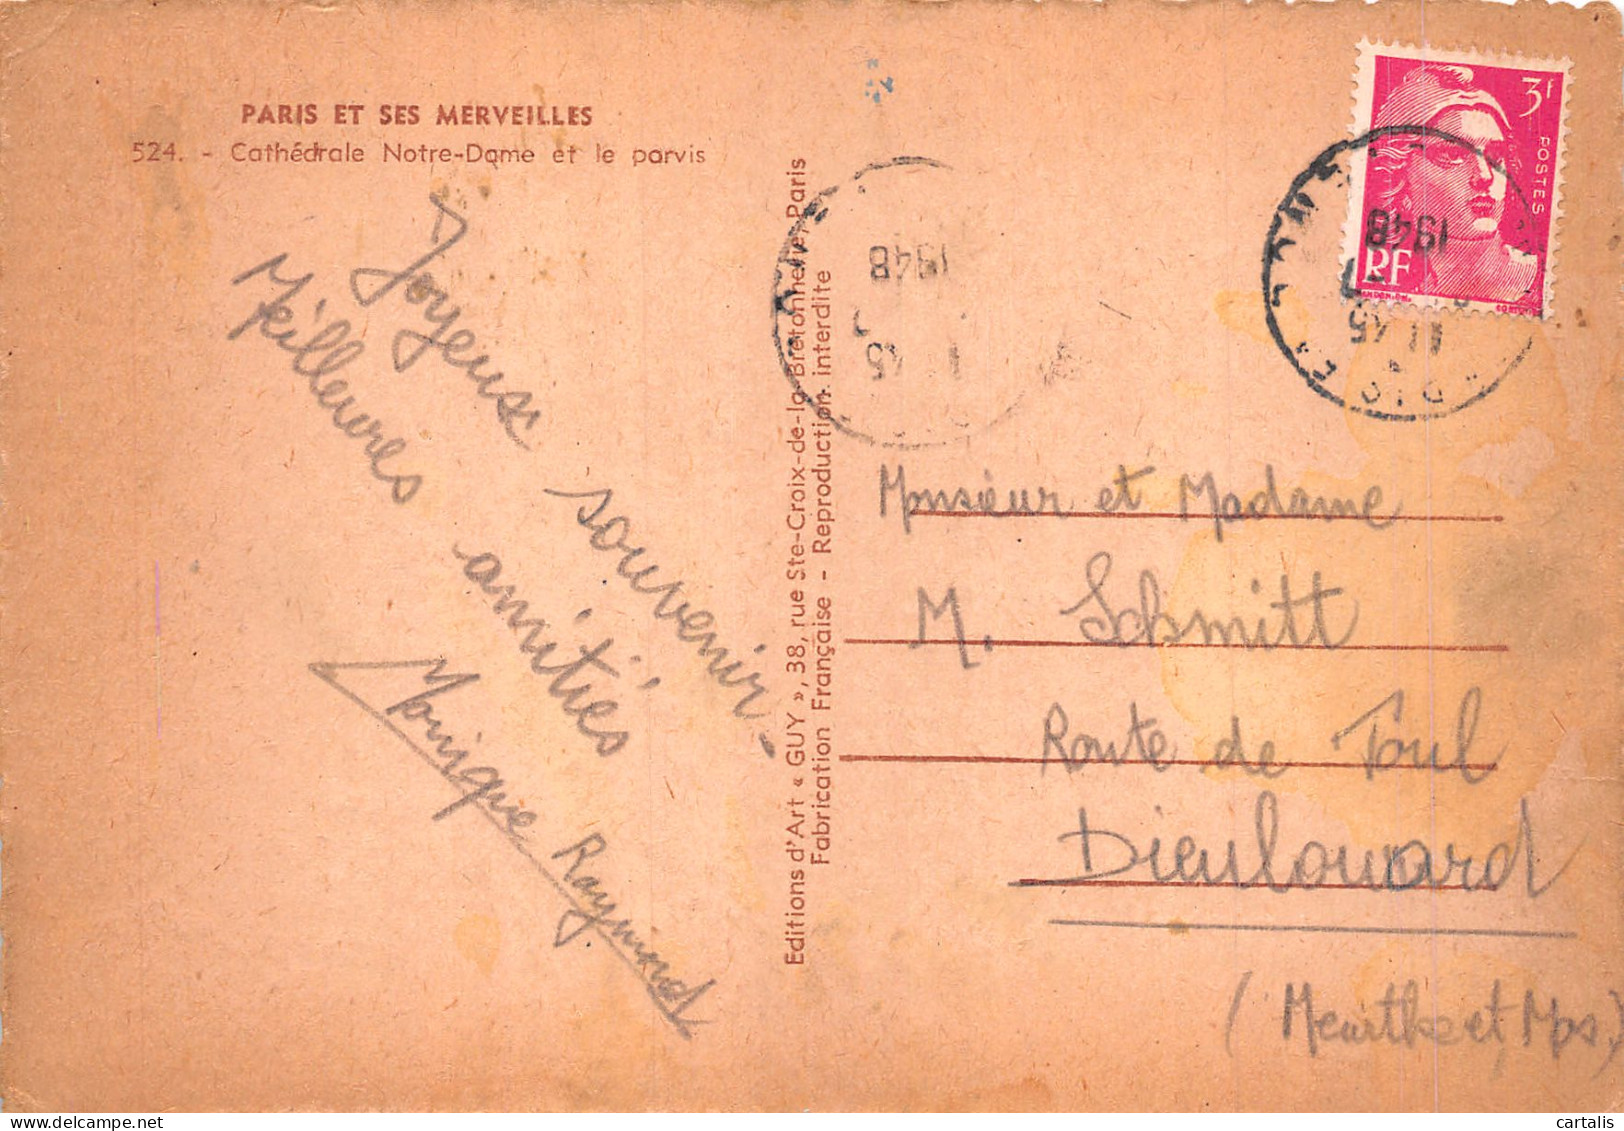 PARIS ET SES MERVEILLES
524. - Cathédrale Notre-Dame et le parvis
Joyeux souvenir.
Meilleures amitiés
Monique Raymond
Editions d'Art « GUY », 38, rue Ste-Croix-de-la-Bretonnerie, Paris
Fabrication Française - Reproduction interdite
3f
POSTES
RF
1948
11 45
1948
45
Monsieur et Madame
M. Schmitt
Route de Toul
Dieulouard
(Meurthe et Mos)
cartalis